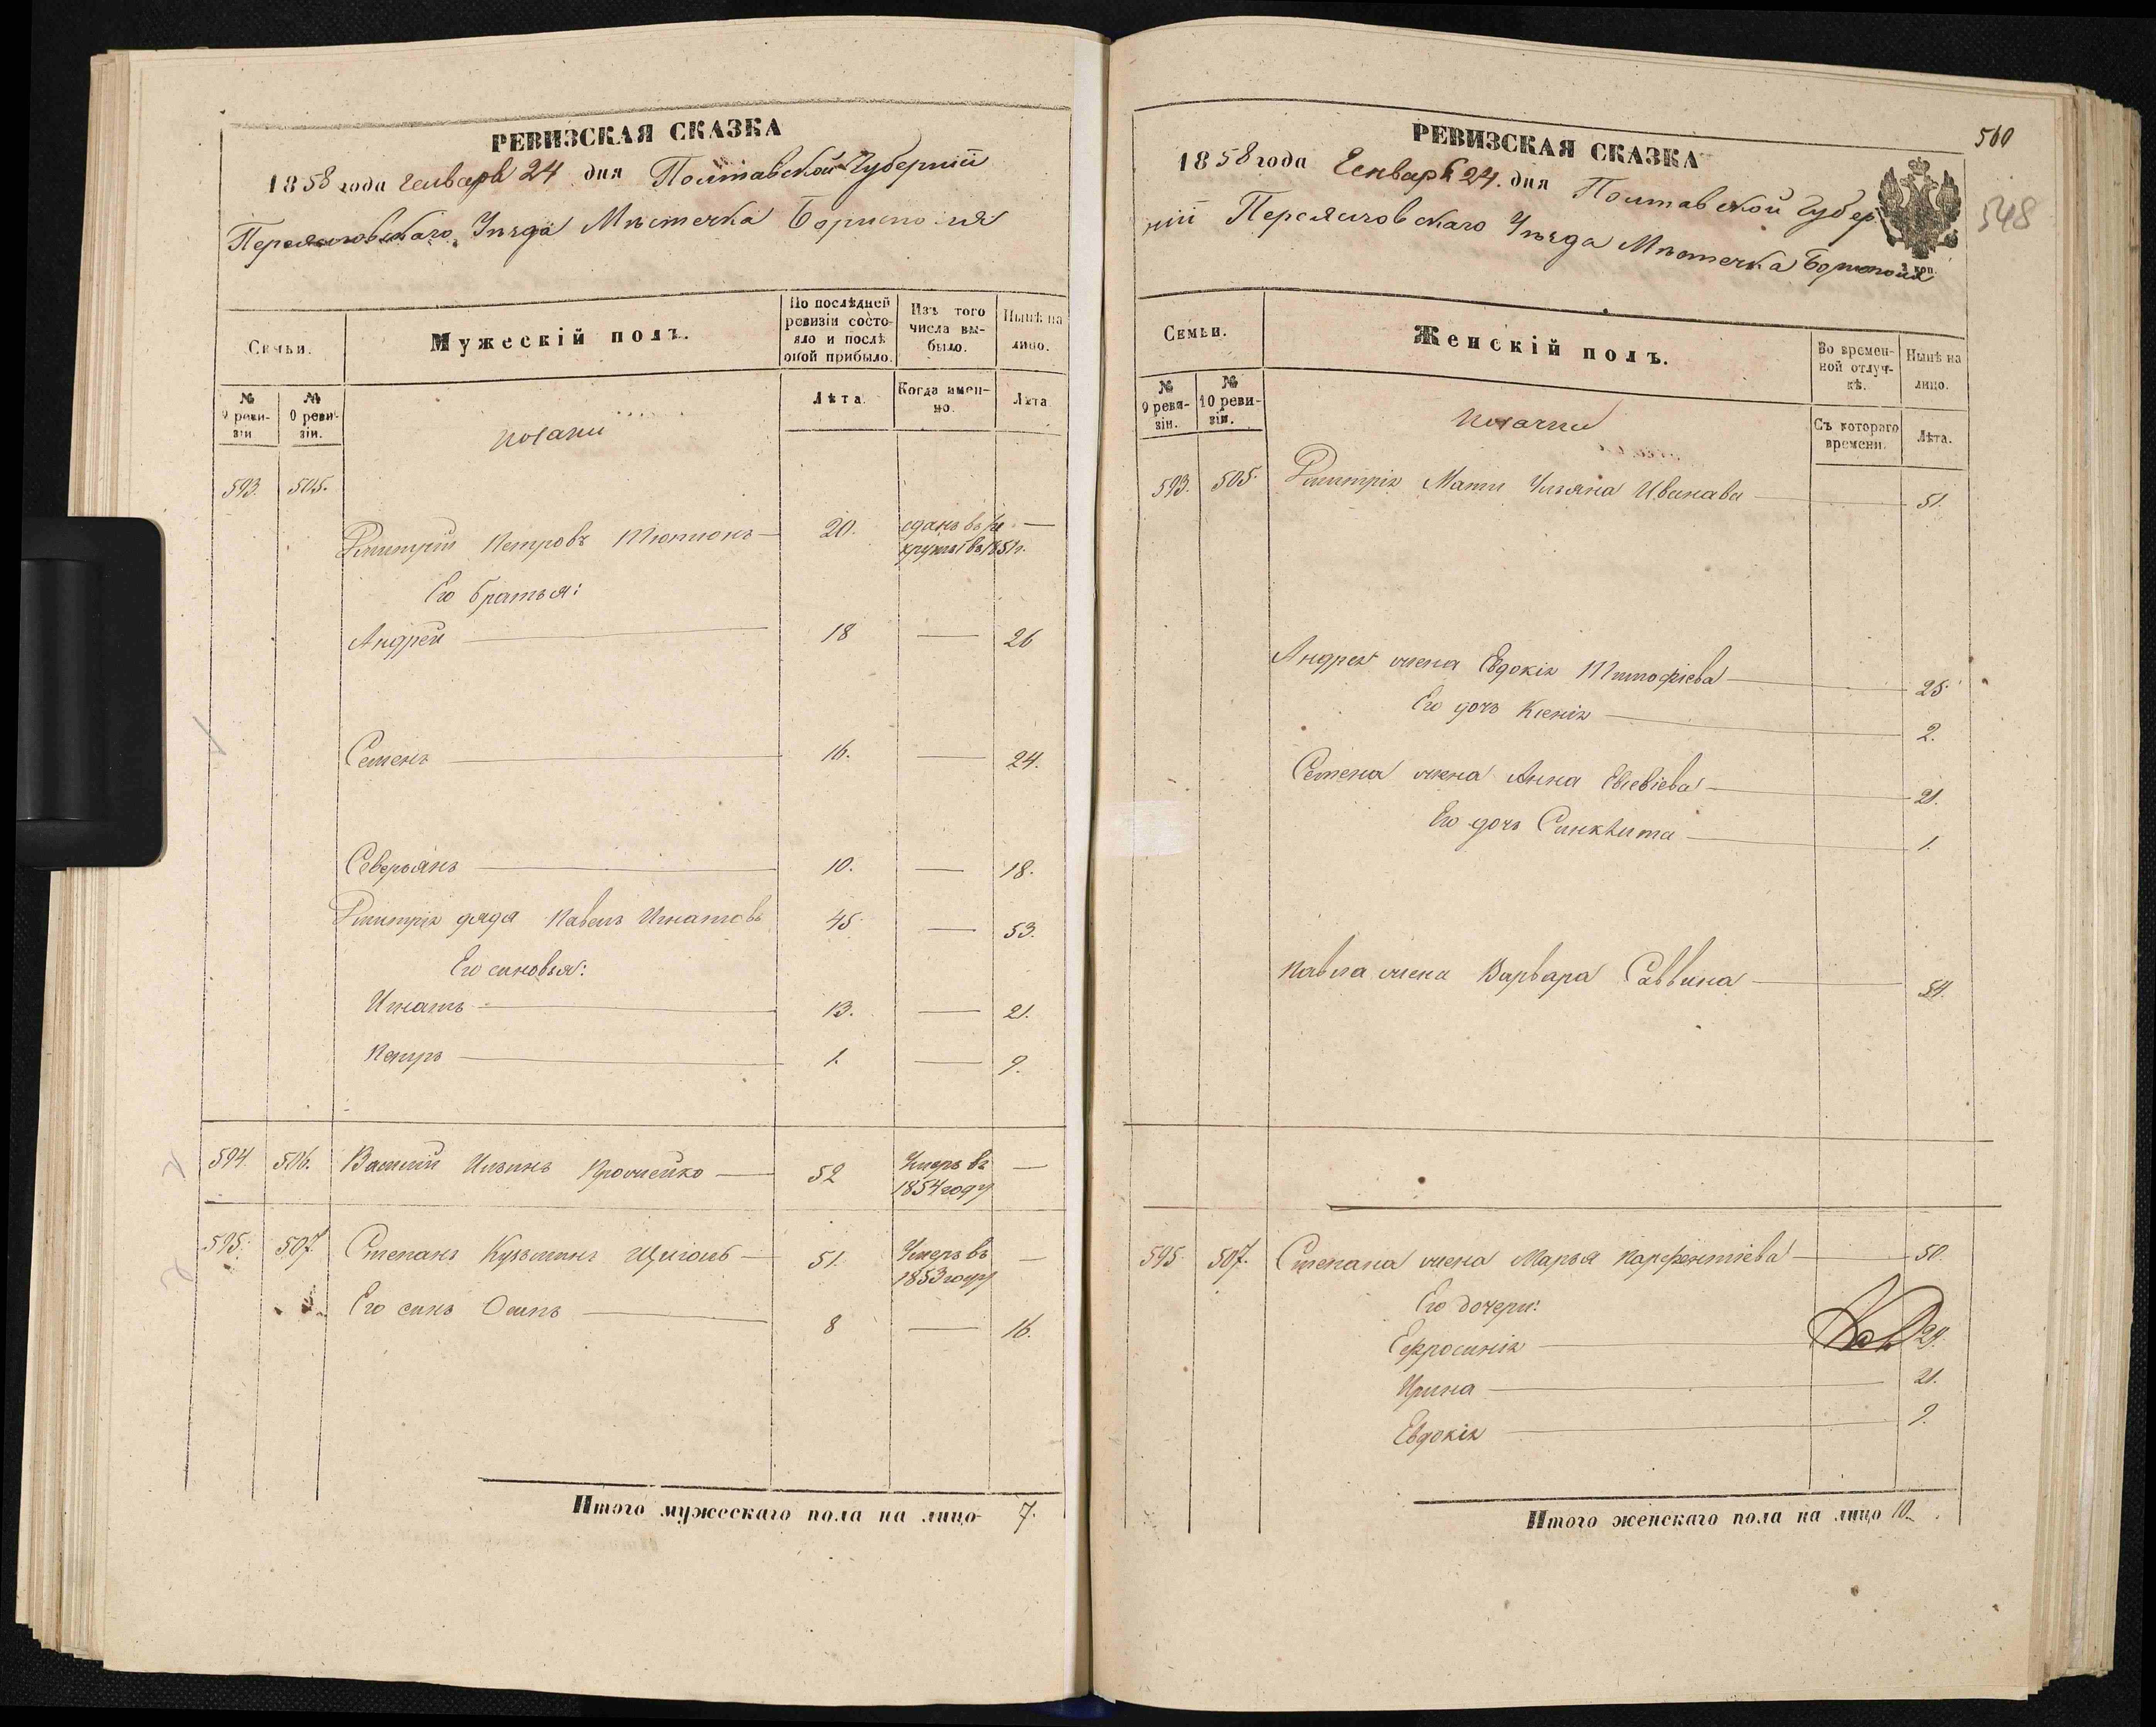 РЕВИЗСКАЯ СКАЗКА
1858 года Генваря 24 дня Полтавской Губернии
Переяславскаго Уѣзда Мѣстечка Борисполя
Семьи.
Мужескій полъ.
По послѣдней ревизіи состояло и послѣ оной прибыло.
Изъ того числа выбыло.
Нынѣ на лицо.
№ 9 ревизіи
№ 10 ревизіи.
Козаки
Лѣта.
Когда именно.
Лѣта
593. 505.
Дмитрій Петровъ 20. сданъ въ рекруты въ 1851 г. —
Его братья:
Андрей 18 — 26
Семенъ 16. — 24.
Северьянъ 10. — 18.
Дмитрія дядя Павелъ Игнатовъ 45 — 53.
Его сыновья:
Игнатъ 13. — 21.
Петръ 1. — 9.
594 506. Василій Ильинъ 52 Умеръ въ 1854 году —
595. 507. Степанъ Кузьминъ Щиголь 51. Умеръ въ 1853 году —
Его сынъ Осипъ 8 — 16.
Итого мужескаго пола на лицо 7.
560
548
РЕВИЗСКАЯ СКАЗКА
1858 года Генваря 24. дня Полтавской Губер
ніи Переяславскаго Уѣзда Мѣстечка Борисполя
Семьи.
Женскій полъ.
Во временной отлучкѣ.
Нынѣ на лицо.
№ 9 ревизіи.
№ 10 ревизіи.
Козачки
Съ котораго времени.
Лѣта.
593. 505. Дмитрія Мати Ульяна Иванова 51.
Андрея жена Евдокія Тимофіева 25.
Его дочь Ксенія 2.
Семена жена Анна Евсевіева 21.
Его дочь Синклита 1.
Павла жена Варвара Саввина 54.
595. 507. Степана жена Марья Парфентіева 50.
Его дочери:
Ефросинія 29.
Ирина 21.
Евдокія 9.
Итого женскаго пола на лицо 10.